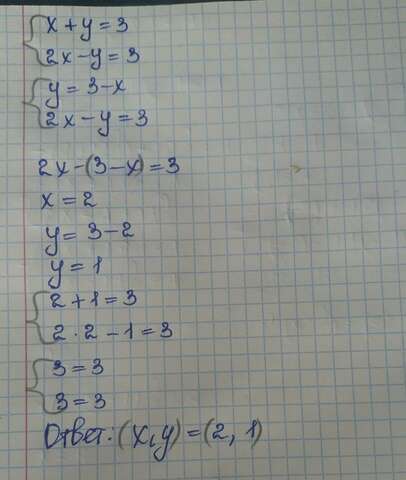 x + y = 3
2x - y = 3
y = 3 - x
2x - y = 3
2x - (3 - x) = 3
x = 2
y = 3 - 2
y = 1
2 + 1 = 3
2 · 2 - 1 = 3
3 = 3
3 = 3
Ответ: (x, y) = (2, 1)